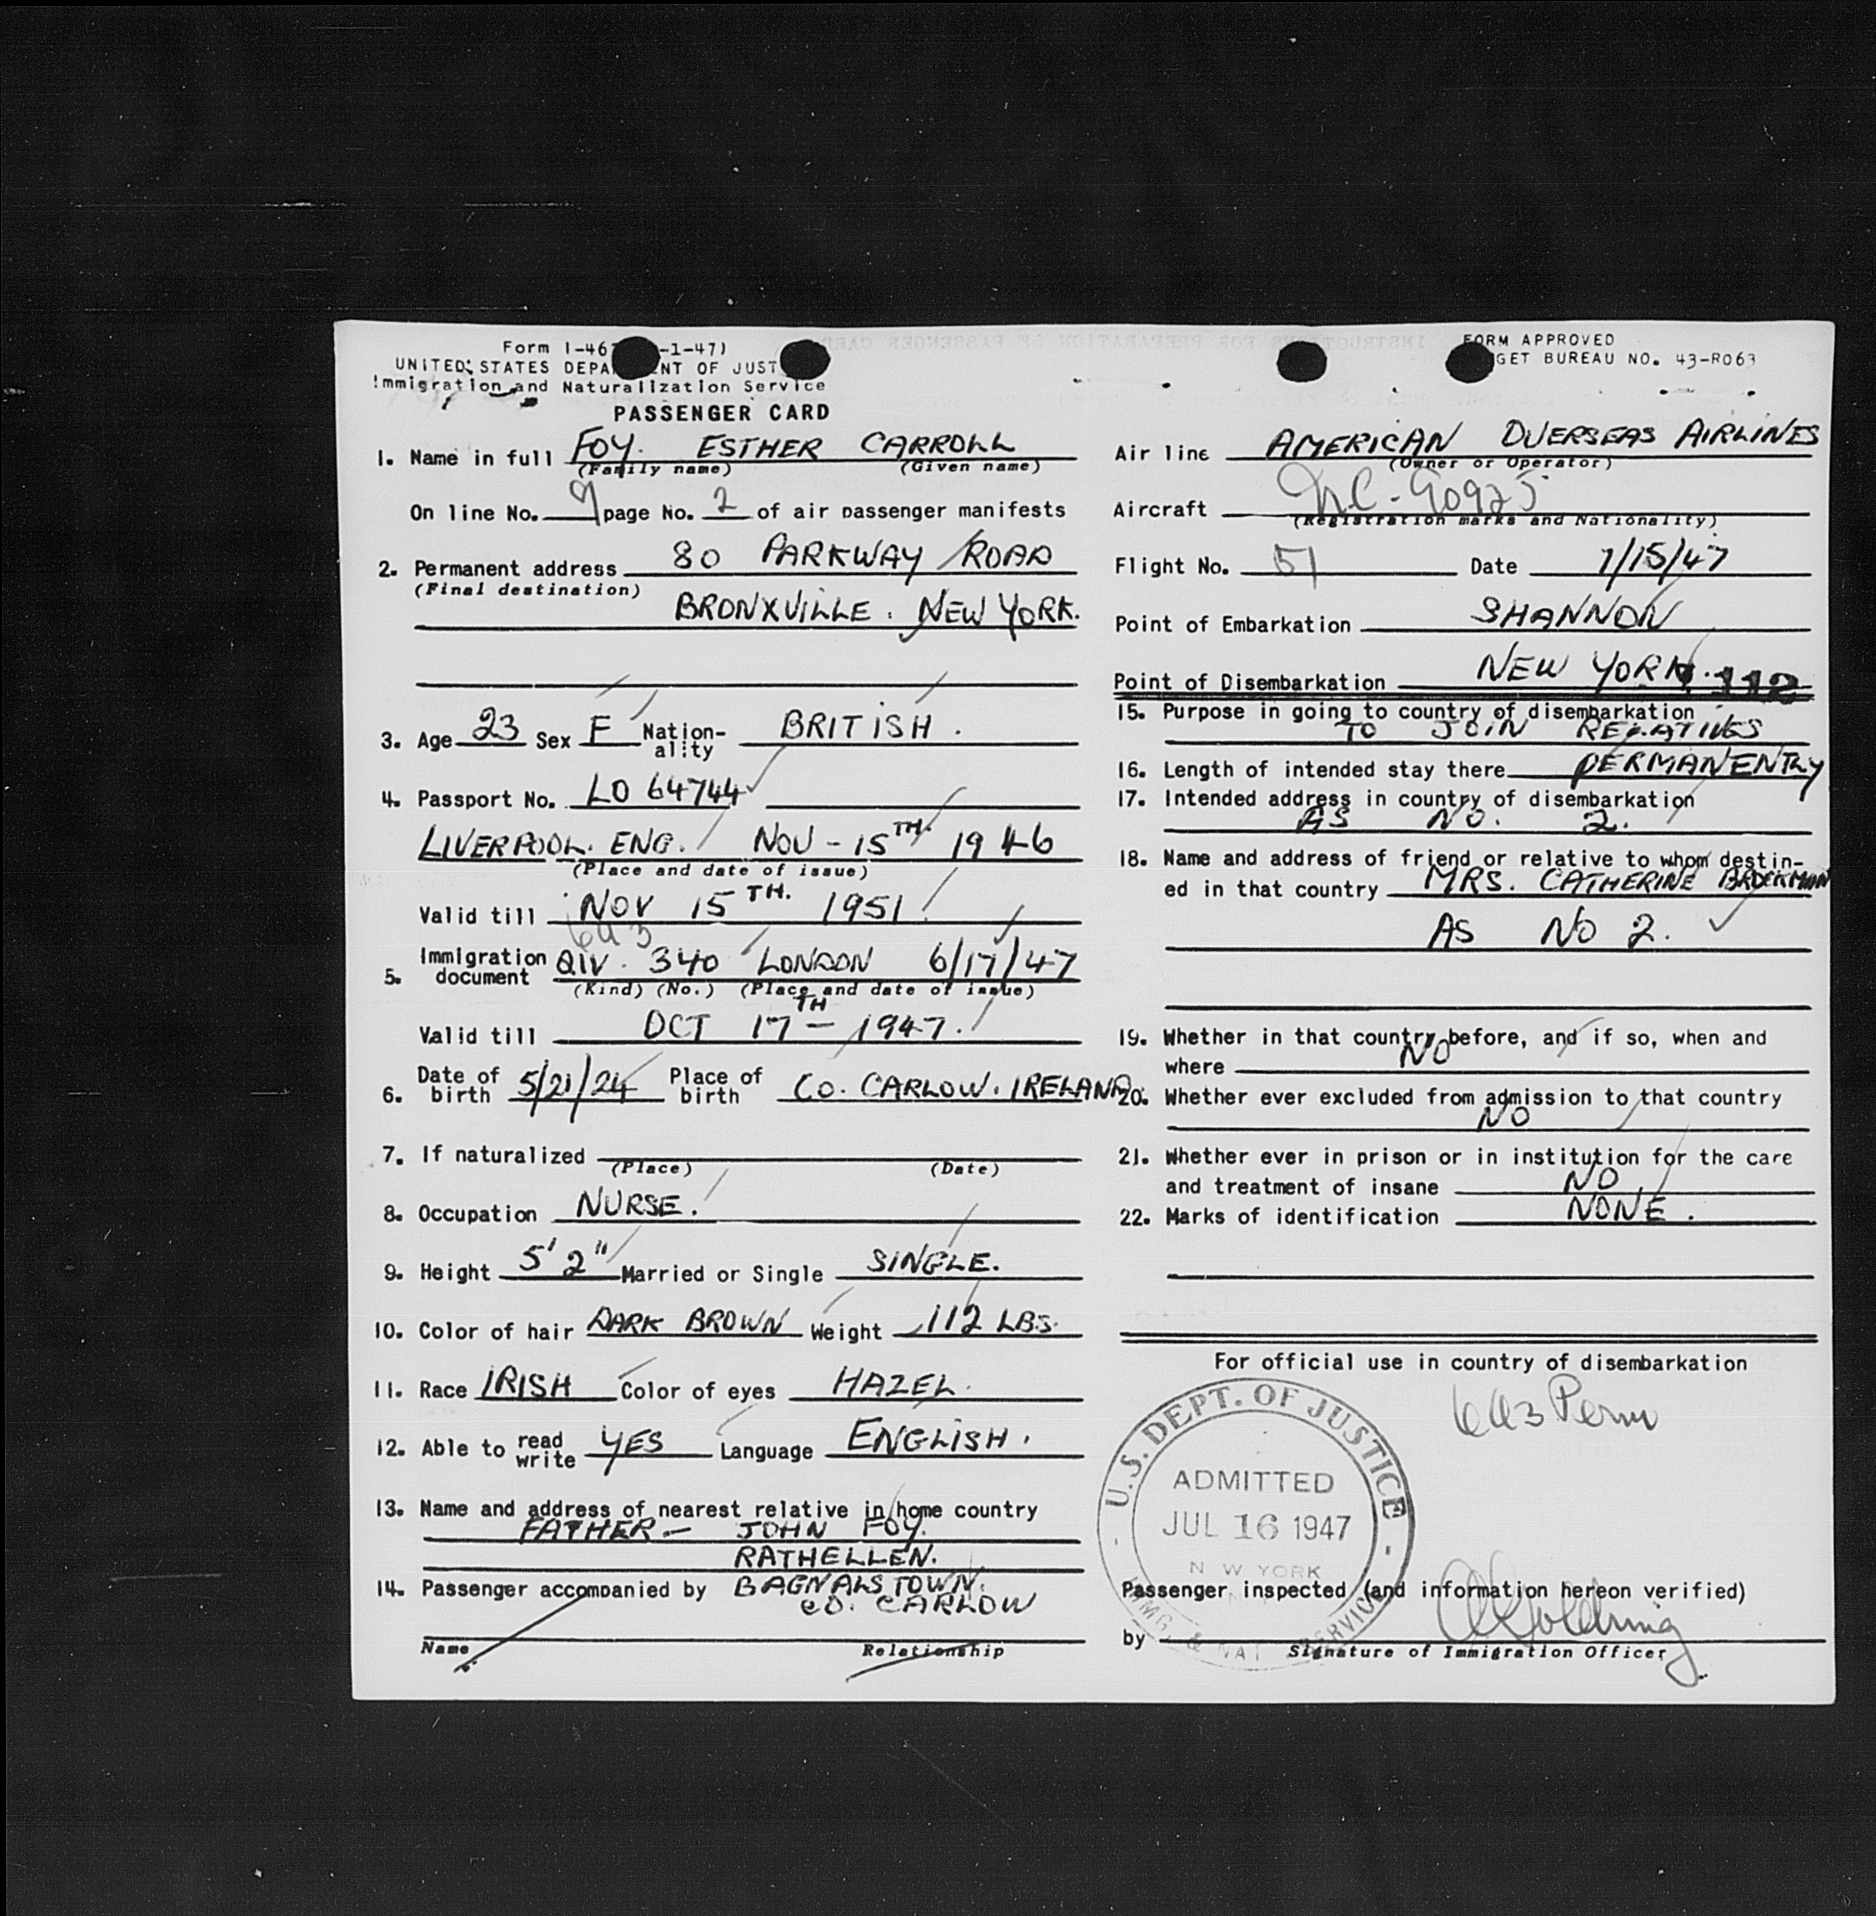 Form I-46 -1-47)
UNITED STATES DEPA NT OF JUST
Immigration and Naturalization Service
PASSENGER CARD
1. Name in full FOY. ESTHER CARROLL
(Family name) (Given name)
On line No. 9 page No. 2 of air passenger manifests
2. Permanent address 80 PARKWAY ROAD
(Final destination)
BRONXVILLE. NEW YORK.
3. Age 23 Sex F Nation-ality BRITISH.
4. Passport No. LO 64744
LIVERPOOL. ENG. NOV - 15TH. 1946
(Place and date of issue)
Valid till NOV 15TH. 1951.
643
5. Immigration document QIV. 340 LONDON 6/17/47
(Kind) (No.) (Place and date of issue)
Valid till OCT 17TH - 1947.
6. Date of birth 5/21/24 Place of birth CO. CARLOW. IRELAND.
7. If naturalized
(Place) (Date)
8. Occupation NURSE.
9. Height 5' 2" Married or Single SINGLE.
10. Color of hair DARK BROWN Weight 112 LBS.
11. Race IRISH Color of eyes HAZEL.
12. Able to read write YES Language ENGLISH.
13. Name and address of nearest relative in home country
FATHER - JOHN FOY.
RATHELLEN.
14. Passenger accompanied by BAGNALSTOWN.
CO. CARLOW
Name Relationship
FORM APPROVED
GET BUREAU NO. 43-R063
Air line AMERICAN OVERSEAS AIRLINES
(Owner or Operator)
Aircraft NC-90925
(Registration marks and Nationality)
Flight No. 51 Date 7/15/47
Point of Embarkation SHANNON
Point of Disembarkation NEW YORK. 112
15. Purpose in going to country of disembarkation
TO JOIN RELATIVES
16. Length of intended stay there PERMANENTLY
17. Intended address in country of disembarkation
AS NO. 2.
18. Name and address of friend or relative to whom destin-
ed in that country MRS. CATHERINE BROEKMAN
AS NO 2.
19. Whether in that country before, and if so, when and
where NO
20. Whether ever excluded from admission to that country
NO
21. Whether ever in prison or in institution for the care
and treatment of insane NO
22. Marks of identification NONE.
For official use in country of disembarkation
643 Perm
U.S. DEPT. OF JUSTICE
ADMITTED
JUL 16 1947
N W YORK
IMMG. & NAT SERVICE
Passenger inspected (and information hereon verified)
by Goldring
Signature of Immigration Officer